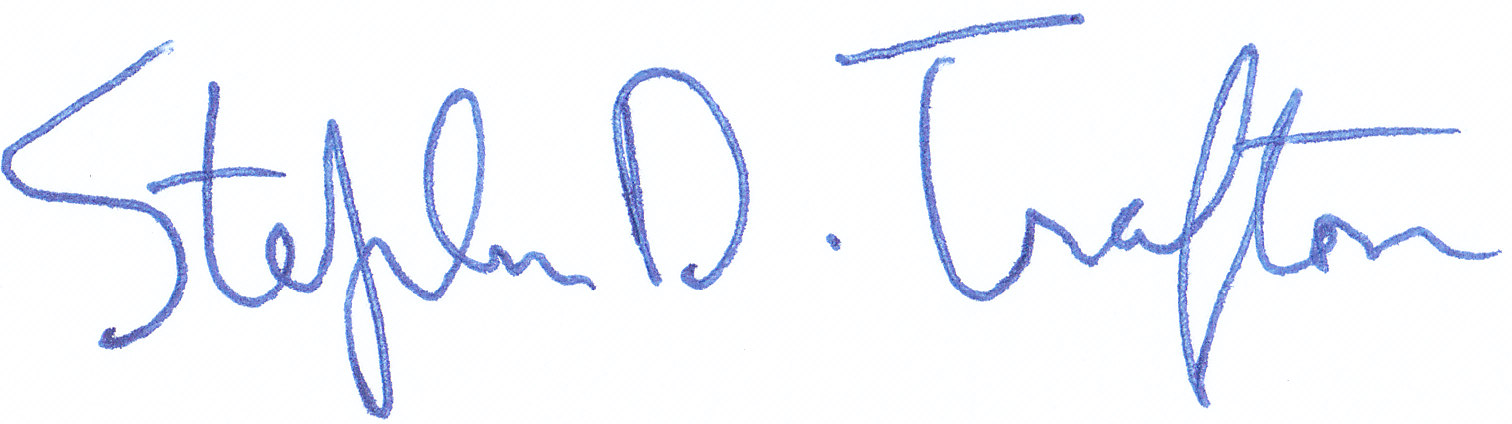 Stephen D. Trafton